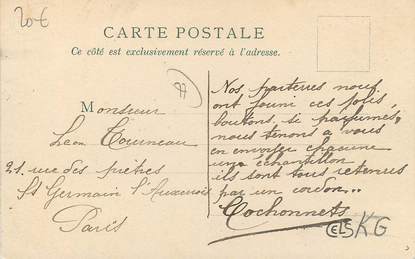 20€
CARTE POSTALE
Ce côté est exclusivement réservé à l'adresse.
Monsieur
Léon Tourneau
21. rue des prêtres
St Germain l'Auxerrois
Paris
Nos parterres neuf
ont fourni ces jolis
boutons, si parfumés,
nous tenons a vous
en envoyer chacune
un échantillon
ils sont tous retenus
par un cordon...
Cochonnets
CELS KG